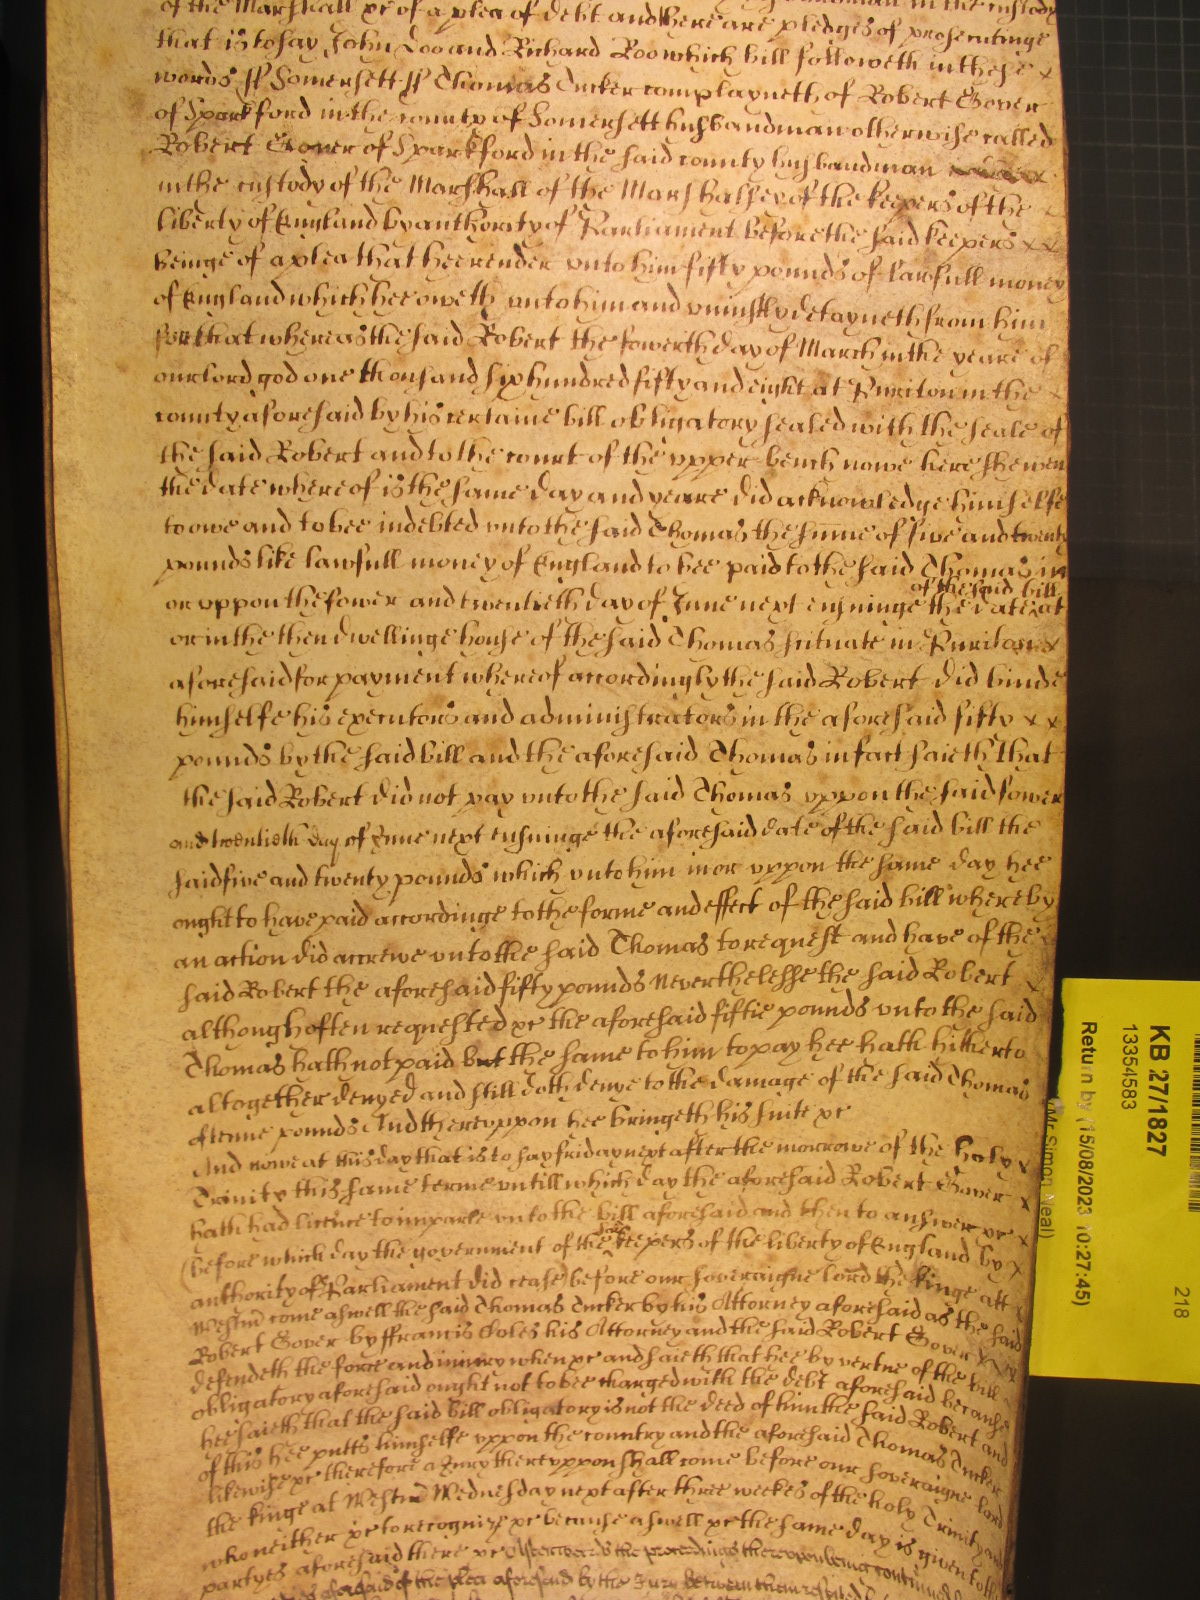 of the Marshall &c of a plea of debt and there are pledges of prosecutinge
that is to say John Doo and Richard Roo which bill followeth in these x
words ss Somersett ss Thomas Tucker complayneth of Robert Gover
of Sparkford in the county of Somersett husbandman otherwise called
Robert Gover of Sparkford in the said county husbandman
in the custody of the Marshall of the Marshalsey of the keepers of the
liberty of England by authority of Parliament before the said keepers x x
beinge of a plea that hee render unto him fifty pounds of lawfull money
of England which hee oweth unto him and uniustly detayneth from him
for that whereas the said Robert the fowerth day of March in the yeare of
our lord god one thousand six hundred fifty and eight at Puriton in the
county aforesaid by his certaine bill obligatory sealed with the seale of
the said Robert and to the court of the upper bench nowe here shewen
the date whereof is the same day and yeare did acknowledge himselfe
to owe and to bee indebted unto the said Thomas the summe of five and twenty
pounds like lawfull money of England to bee paid to the said Thomas in
of the said bill
or uppon the fower and twentieth day of June next ensuinge the date at
or in the then dwellinge house of the said Thomas scituate in Puriton x
aforesaid for payment whereof accordingly the said Robert did binde
himselfe his executors and administrators in the aforesaid fifty x x
pounds by the said bill and the aforesaid Thomas in fact saieth that
the said Robert did not pay unto the said Thomas uppon the said fower
and twentieth day of June next ensuinge the aforesaid date of the said bill the
said five and twenty pounds which unto him in or uppon the same day hee
ought to have paid accordinge to the forme and effect of the said bill whereby
an action did accrewe unto the said Thomas to request and have of the
said Robert the aforesaid fifty pounds Neverthelesse the said Robert x
although often requested &c the aforesaid fiftie pounds unto the said
Thomas hath not paid but the same to him to pay hee hath hitherto
altogether denyed and still doth denye to the damage of the said Thomas
of tenne pounds And thereuppon hee bringeth his suite &c
And nowe at this day that is to say friday next after the morrowe of the holy x
Trinity this same terme untill which day the aforesaid Robert Gover x
hath had licence to imparle unto the bill aforesaid and then to answer &c x
(before which day the government of the late keepers of the liberty of England by x
authority of Parliament did cease) before our soveraigne lord the kinge att x
Westm come aswell the said Thomas Tucker by his Attorney aforesaid as the said
Robert Gover by ffrancis Coles his Attorney and the said Robert Gover x x x
defendeth the force and iniury when &c and saieth that hee by vertue of the bill
obligatory aforesaid ought not to bee charged with the debt aforesaid because
hee saieth that the said bill obligatory is not the deed of him the said Robert and
of this hee putts himselfe uppon the country and the aforesaid Thomas Tucker
likewise &c therefore a Jury thereuppon shall come before our soveraigne lord
the kinge at Westm Wednesday next after three weekes of the holy Trinity and
who neither &c to recognize &c because aswell &c the same day is given to the
partyes aforesaid there &c Afterwards the proceedings thereupon being continued
aforesaid of the plea aforesaid by the Jury betweene them
KB 27/1827
13354583
218
Return by (15/08/2023 10:27:45)
(Mr Simon Neal)